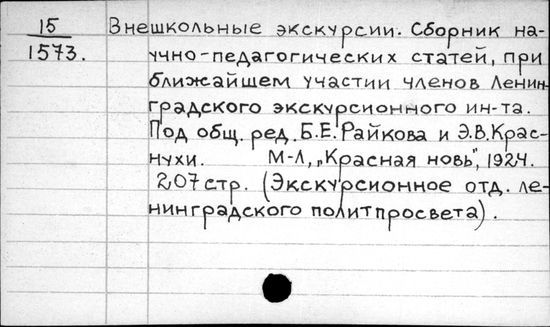 15 Внешкольные экскурсии. Сборник на-
1573. учно-педагогических статей, при
ближайшем участии членов Ленин-
градского экскурсионного ин-та.
Под общ. ред. Б.Е.Райкова и Э.В.Крас-
нухи. М-Л, „Красная новь", 1924.
207 стр. (Экскурсионное отд. ле-
нинградского политпросвета).